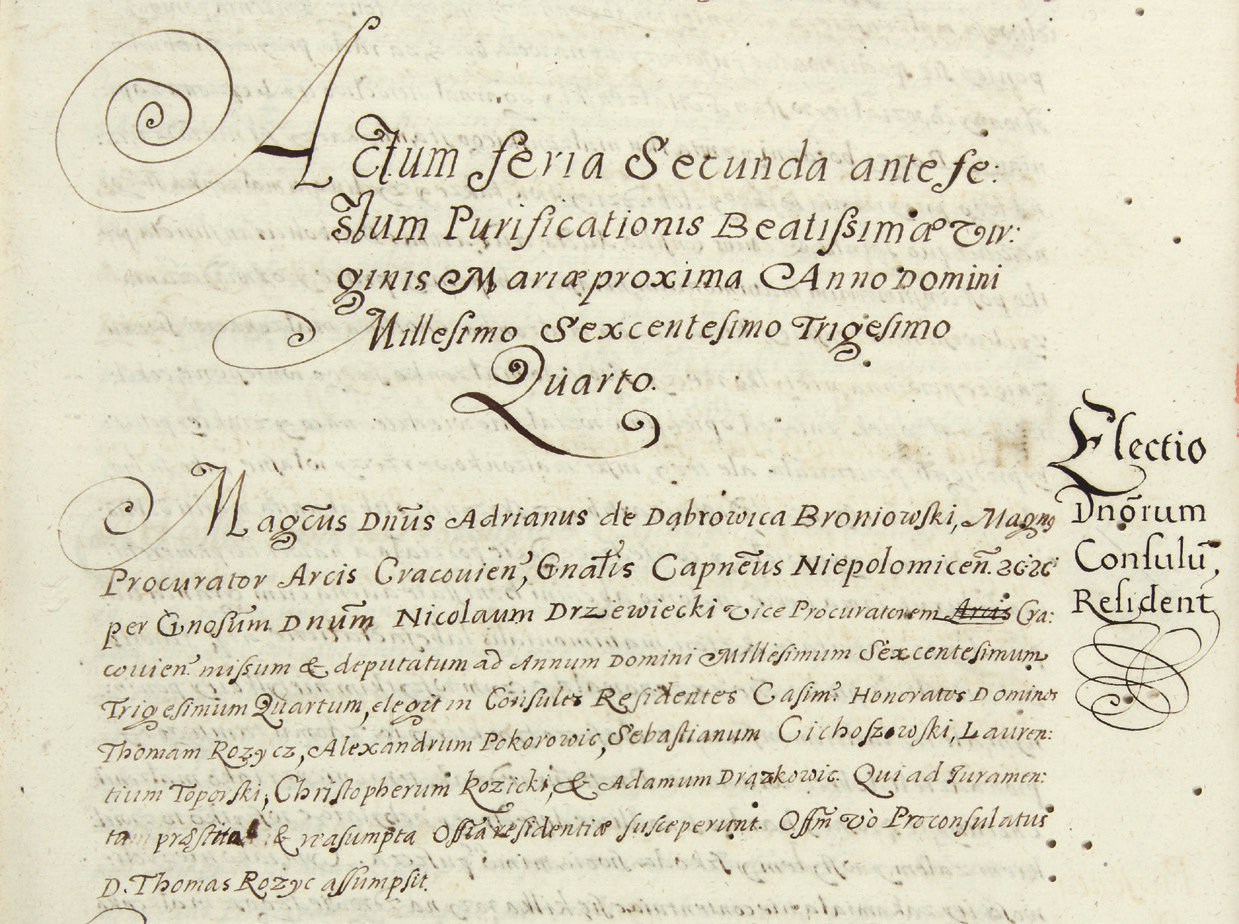 Actum feria Secunda ante fe:
stum Purificationis Beatissimæ Vir:
ginis Mariæ proxima Anno Domini
Millesimo Sexcentesimo Trigesimo
Quarto.
Electio
Dnōrum
Consulū,
Resident
Magcūs Dnūs Adrianus de Dąbrowica Broniowski, Magng
Procurator Arcis Cracouien, Gnālis Capnēus Niepolomicen̄. &c &c
per Gnosūm Dnūm Nicolaum Drzewiecki vice Procuratorem Arcis Cra:
couien̄ missum & deputatum ad Annum Domini Millesimum Sexcentesimum
Trigesimum Quartum, elegit in Consules Residentes Casim: Honoratos Dominos
Thomam Rozycz, Alexandrum Pokorowic, Sebastianum Cichoszowski, Lauren:
tium Toporski, Christopherum Kozicki, & Adamum Drązkowic. Qui ad Juramen:
tum præstita & reasumpta Offīa residentiæ susceperunt. Offm̄ vo Proconsulatus
D. Thomas Rozyc assumpsit.